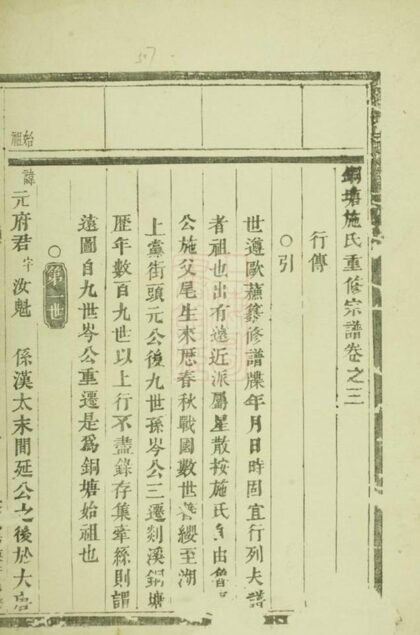 銅塘施氏重修宗譜卷之三
行傳
○引
世遵歐蘇纂修譜牒年月日時固宜行列夫譜
者祖也出有遠近派屬星散按施氏自由魯
公施父尾生來歷春秋戰國數世簪纓至湖
上臺街頭元公後九世孫岑公三遷剡溪銅塘
歷年數百九世以上行不盡錄存集牽絲則謂
遠圖自九世岑公重遷是爲銅塘始祖也
○第一世
始祖
諱元府君字汝魁 係漢太末間延公之後於大唐